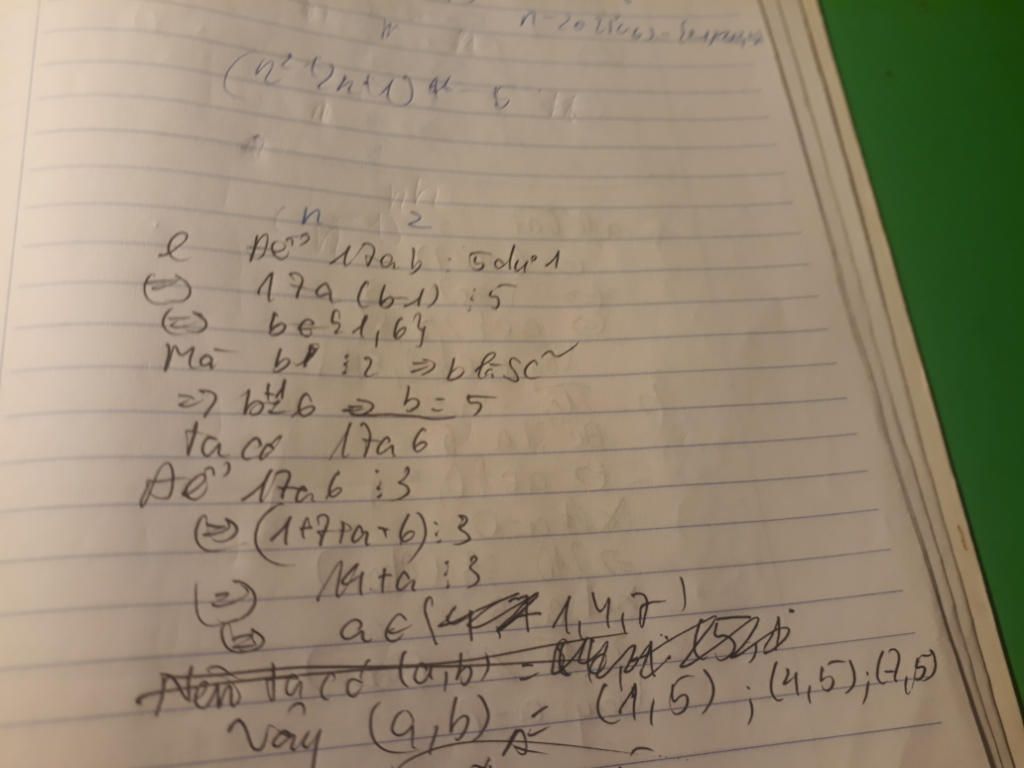 (n² + 2n + 1)
n 2
Để 17ab : 5 dư 1
⇔ 17a(b-1) ⋮ 5
⇔ b ∈ {1,6}
Mà b ⋮ 2 ⇒ b
⇒ b = 6 ⇒ b = 5
ta có 17a6
Để 17a6 ⋮ 3
⇔ (1+7+a+6) ⋮ 3
⇔ 14+a ⋮ 3
⇔ a ∈ { 1,4,7 }
Nên ta có (a,b) =
Vậy (a,b) = (1,5) ; (4,5) ; (7,5)